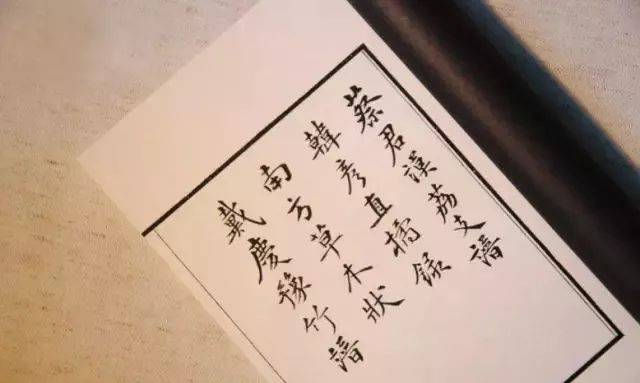 蔡君謨荔支譜
韓彥直橘錄
南方草木狀
戴慶豫竹譜